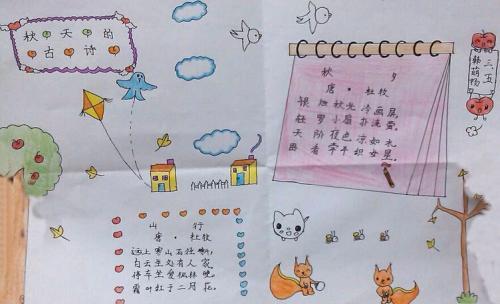 秋天的
古诗
秋 夕
唐·杜牧
银烛秋光冷画屏,
轻罗小扇扑流萤。
天阶夜色凉如水,
卧看牵牛织女星。
三、五
山 行
唐·杜牧
远上寒山石径斜,
白云生处有人家。
停车坐爱枫林晚,
霜叶红于二月花。